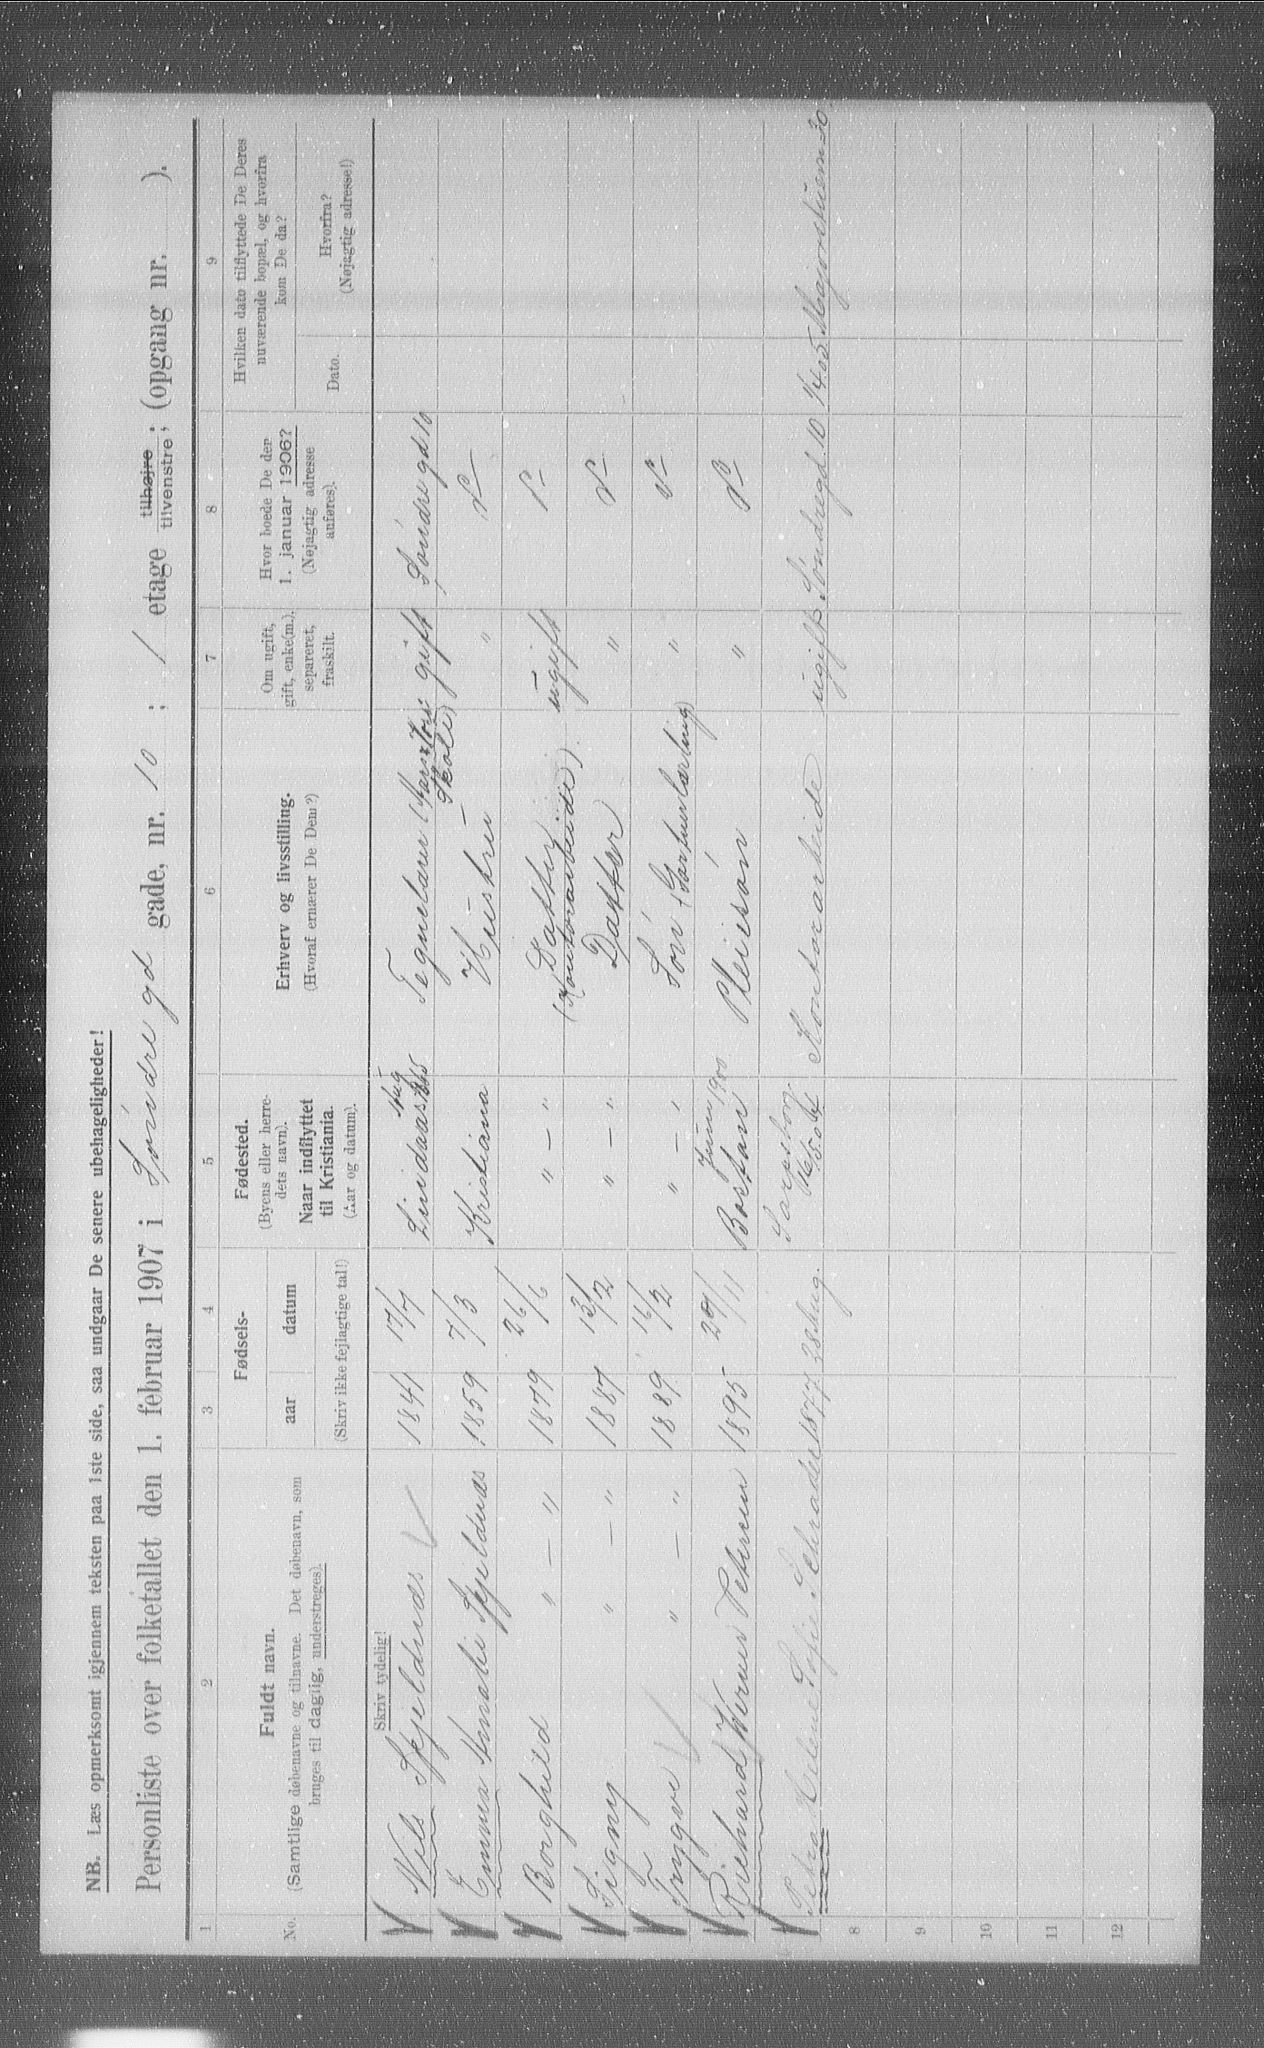 NB. Læs opmerksomt igjennem teksten paa 1ste side, saa undgaar De senere ubehageligheder!
Personliste over folketallet den 1. februar 1907 i Söndre gd gade, nr. 10 ; 1 etage tilhøjre tilvenstre ; (opgang nr. ).
1 2 3 4 5 6 7 8 9
No.
Fuldt navn.
(Samtlige døbenavne og tilnavne. Det døbenavn, som
bruges til daglig, understreges).
Fødsels-
aar datum
(Skriv ikke fejlagtige tal!)
Fødested.
(Byens eller herre-
dets navn).
Naar indflyttet
til Kristiania.
(Aar og datum).
Erhverv og livsstilling.
(Hvoraf ernærer De Dem?)
Om ugift,
gift, enke(m.),
separeret,
fraskilt.
Hvor boede De den
1. januar 1906?
(Nøjagtig adresse
anføres).
Hvilken dato tilflyttede De Deres
nuværende bopæl, og hvorfra
kom De da?
Dato.
Hvorfra?
(Nøjagtig adresse!)
Skriv tydelig!
Nils Skjeldnæs 1841 17/7 Lindaas Aug 1865 Tegnelærer gift Söndre gd 10
Skole)
Emma Amalie Skjeldnæs 1859 7/3 Kristiana Hustru "
Borghild " — " 1879 26/6 " — " Datter ugift
(Kontorarbeide).
Signy " — " 1887 13/2 " — " Datter "
Trygve " — " 1889 16/2 " — " Sön (Gartnerlærling) "
Richard Werner Petersen 1895 29/11 Bostan Juni 1900 Pleiesön "
Petra Helene Sofie Schrader 1877 28 Aug. Sarpsborg Kontorarbeide ugift Söndregd. 10 1/4 05 Majorstuem 30.
8
9
10
11
12